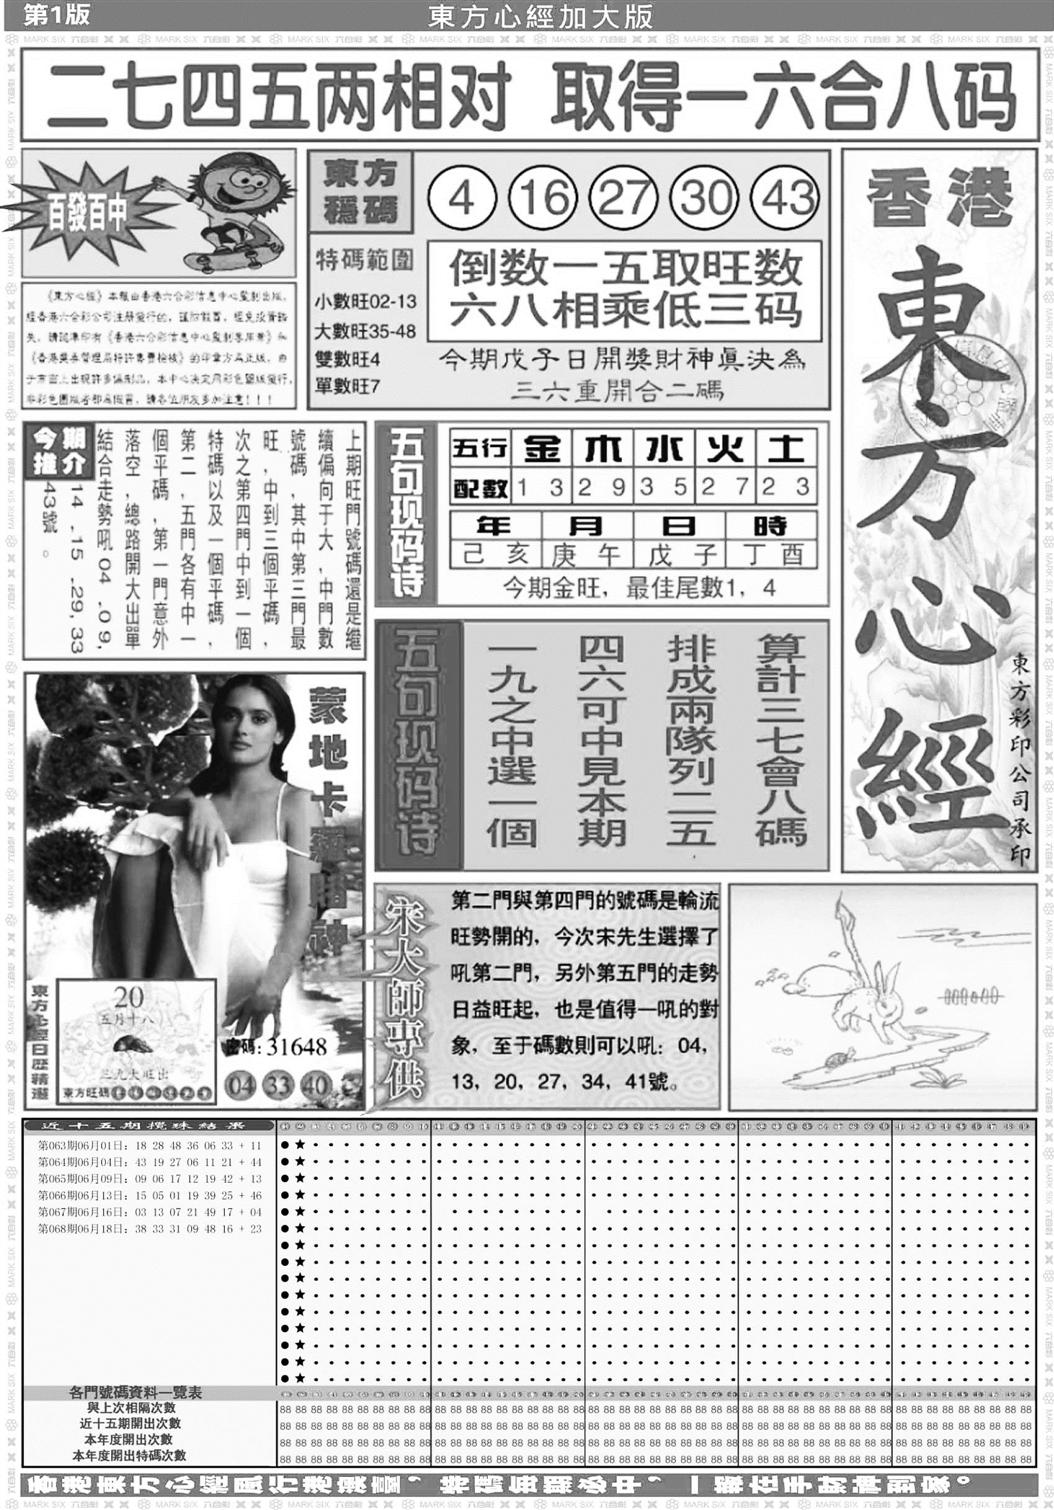 第1版
東方心經加大版
二七四五两相对 取得一六合八码
百發百中
《東方心經》本報由香港六合彩信息中心監制出版,
經香港六合彩公司注册發行的,謹防假冒,避免投資錯
失,請認準印有《香港六合彩信息中心監制專用章》和
《香港獎券管理局特許專賣檢核》的印章方為正版,由
于市面上出現許多偽制品,本中心決定用彩色盟版發行,
非彩色圖版者都為假冒,請各位朋友多加注意!!!
東方穩碼
4 16 27 30 43
特碼範圍
小數旺02-13
大數旺35-48
雙數旺4
單數旺7
倒数一五取旺数
六八相乘低三码
今期戊子日開獎財神眞決為
三六重開合二碼
香港
東方心經
東方彩印公司承印
今期推介
上期旺門號碼還是繼
續偏向于大,中門數
號碼,其中第三門最
旺,中到三個平碼,
次之第四門中到一個
特碼以及一個平碼,
第二,五門各有中一
個平碼,第一門意外
落空,總路開大出單
結合走勢吼04.09,
14.15.29,33
43號。
五句现码诗
五行 金 木 水 火 土
配數 1 3 2 9 3 5 2 7 2 3
年 月 日 時
己亥 庚午 戊子 丁酉
今期金旺，最佳尾數1，4
五句现码诗
算計三七會八碼
排成兩隊列二五
四六可中見本期
一九之中選一個
蒙地卡羅賭神
東方心經日歷精選
20
五月十八
三九大旺出
東方旺碼
密码:31648
04 33 40
宋大師專供
第二門與第四門的號碼是輪流
旺勢開的，今次宋先生選擇了
吼第二門，另外第五門的走勢
日益旺起，也是值得一吼的對
象，至于碼數則可以吼：04，
13，20，27，34，41號。
近十五期攪珠結果
第063期06月01日: 18 28 48 36 06 33 + 11
第064期06月04日: 43 19 27 06 11 21 + 44
第065期06月09日: 09 06 17 12 19 42 + 13
第066期06月13日: 15 05 01 19 39 25 + 46
第067期06月16日: 03 13 07 21 49 17 + 04
第068期06月18日: 38 33 31 09 48 16 + 23
各門號碼資料一覽表
與上次相隔次數
近十五期開出次數
本年度開出次數
本年度開出特碼次數
香港東方心經風行港澳臺，特碼每期必中，一報在手財神到家。